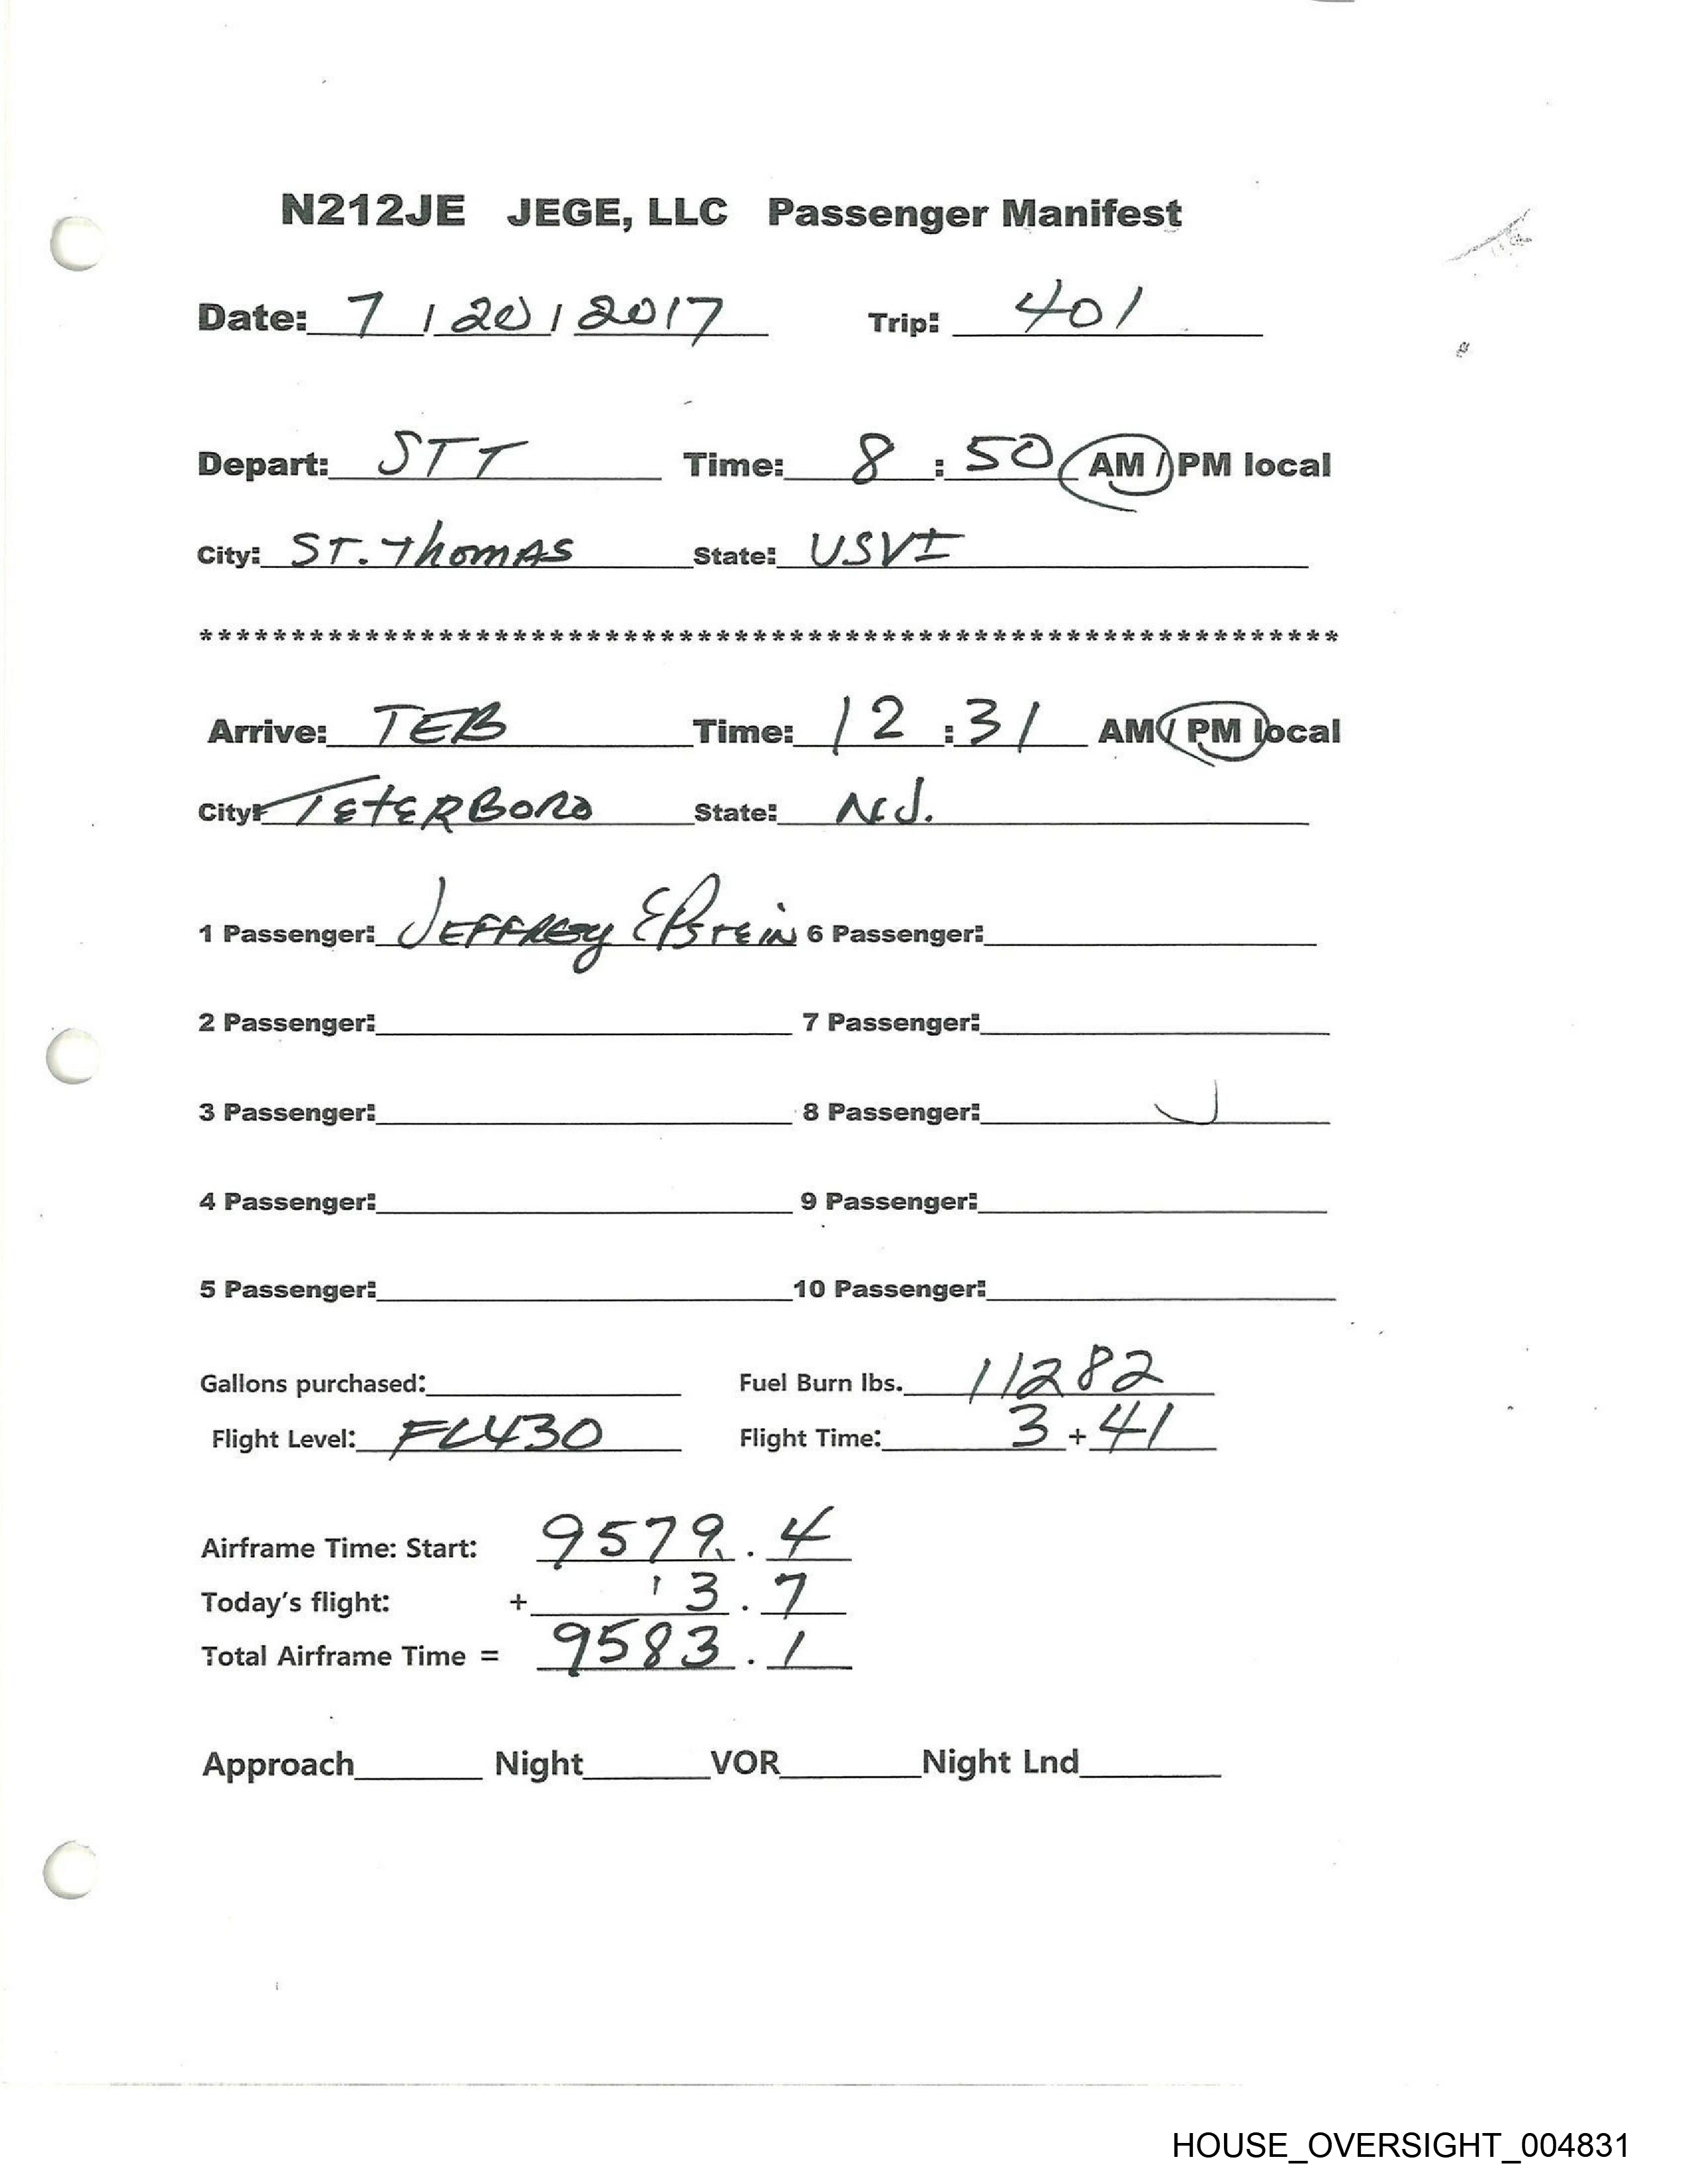 N212JE JEGE, LLC Passenger Manifest
Date: 7 / 20 / 2017 Trip: 401
Depart: STT Time: 8 : 50 AM / PM local
City: ST. Thomas State: USVI
*******************************************************************
Arrive: TEB Time: 12 : 31 AM / PM local
City: TETERBORO State: N.J.
1 Passenger: JEFFREY EPSTEIN 6 Passenger:
2 Passenger: 7 Passenger:
3 Passenger: 8 Passenger:
4 Passenger: 9 Passenger:
5 Passenger: 10 Passenger:
Gallons purchased: Fuel Burn lbs. 11282
Flight Level: FL430 Flight Time: 3 + 41
Airframe Time: Start: 9579 . 4
Today's flight: + 3 . 7
Total Airframe Time = 9583 . 1
Approach Night VOR Night Lnd
HOUSE_OVERSIGHT_004831